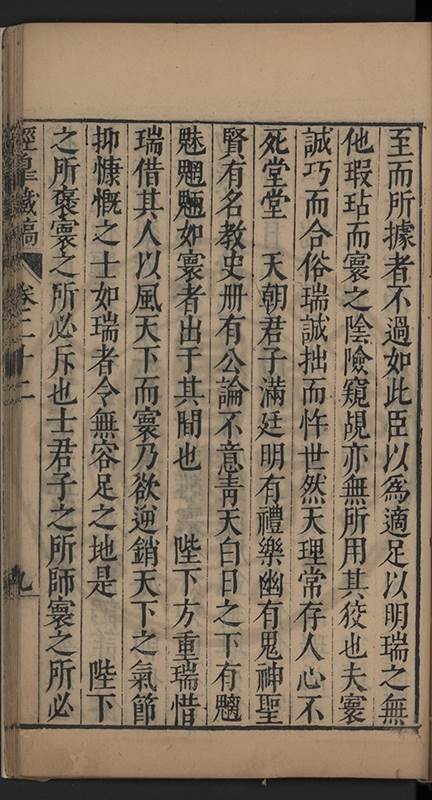 至而所據者不過如此臣以爲適足以明瑞之無
他瑕玷而寰之陰險窺覘亦無所用其狡也夫寰
誠巧而合俗瑞誠拙而忤世然天理常存人心不
死堂堂　天朝君子滿廷明有禮樂幽有鬼神聖
賢有名教史册有公論不意青天白日之下有魑
魅魍魎如寰者出于其間也　陛下方重瑞惜
瑞借其人以風天下而寰乃欲逆銷天下之氣節
抑慷慨之士如瑞者令無容足之地是　陛下
之所褒寰之所必斥也士君子之所師寰之所必
涇臯藏稿　卷二十二　九